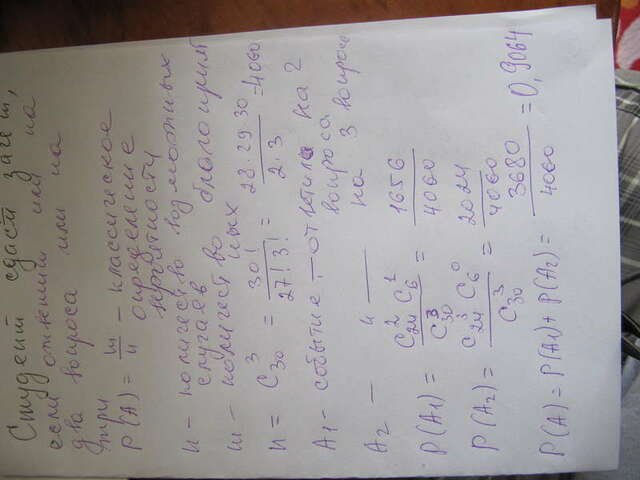 Студент сдаст зачет,
если ответит или на
два вопроса или на
три
P(A) = m/n – классическое
определение
вероятности
n – количество возможных
случаев
m – количество благоприят
ных
n = C₃₀³ = 30!/27!3! = 28·29·30/2·3 = 4060
A₁ – событие – ответил на 2
вопроса
A₂ – –––– " –––– на 3 вопроса
P(A₁) = C₂₄² C₆¹/C₃₀³ = 1656/4060
P(A₂) = C₂₄³ C₆⁰/C₃₀³ = 2024/4060
P(A) = P(A₁) + P(A₂) = 3680/4060 = 0,9064